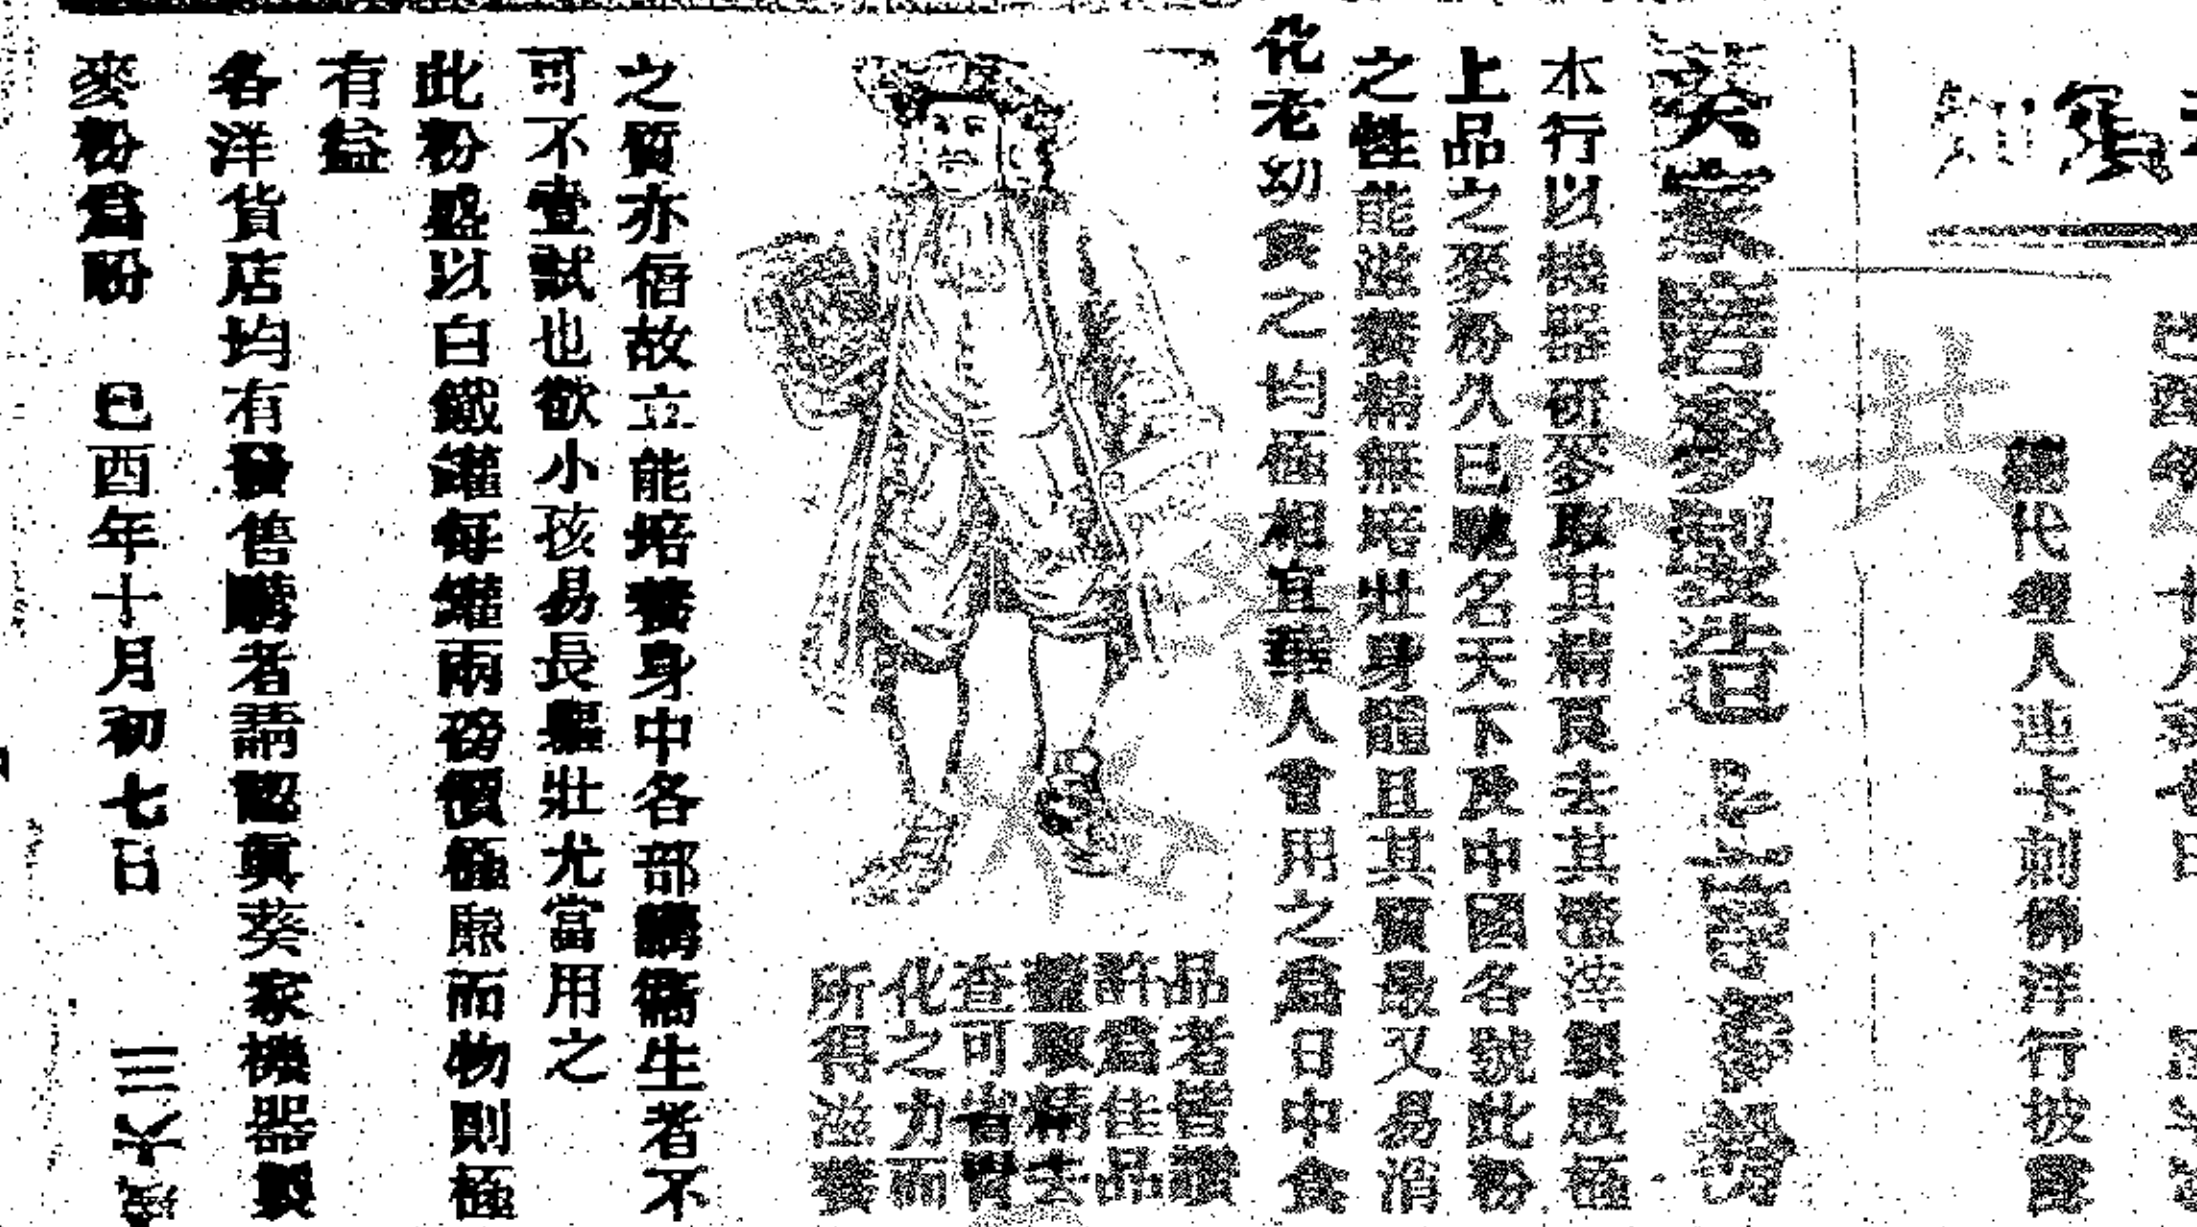 總代理人連卡剌佛洋行披露
葵家磨麥製造上等麥粉
本行以機器研麥取其精良去其渣滓製成極
上品之麥粉久已馳名天下及中國各號此粉
之性能滋養精無培壯身軀且其質最又易消
化老幼食之均極相宜華人會用之爲日中食
品者皆讚
許爲佳品
蓋取精去
查可省胃
化之力而
所得滋養
之質亦倍故立能培養身中各部講衞生者不
可不壹試也欲小孩易長軀壯尤當用之
此粉盛以白鐵罐每罐兩磅價極廉而物則極
有益
各洋貨店均有發售購者請認眞葵家機器製
麥粉爲盼 已酉年十月初七日